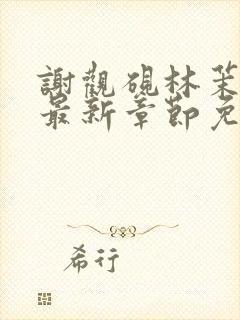 謝觀硯林茉
最新章節免
希行